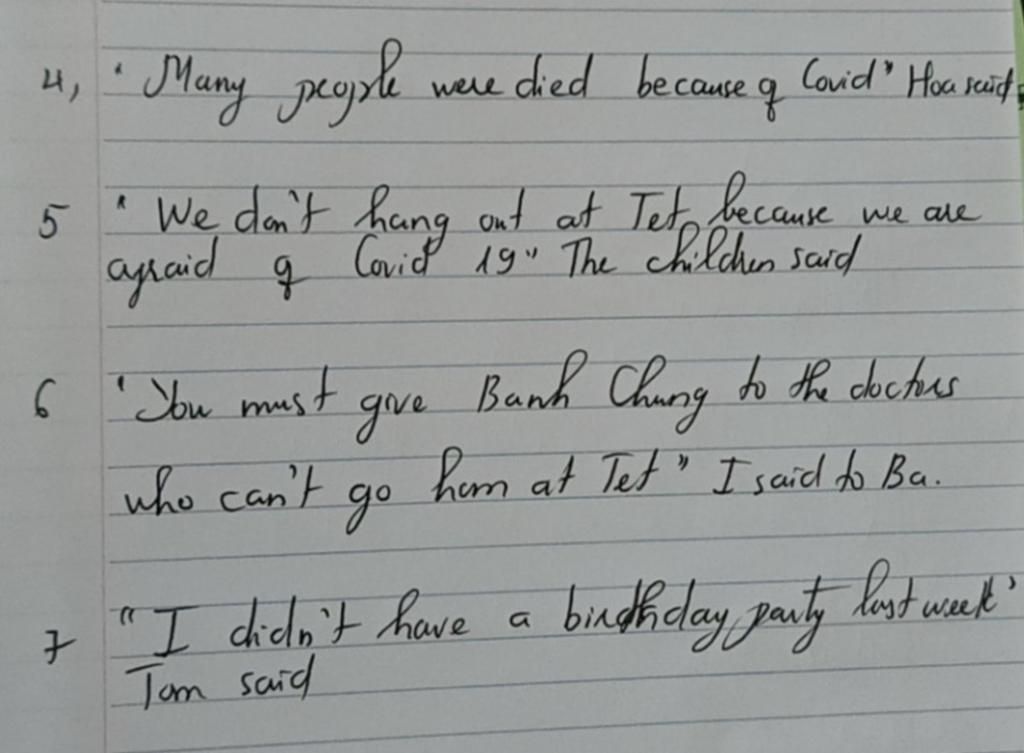 4, " Many people were died because of Covid" Hoa said
5 " We don't hang out at Tet, because we are
afraid of Covid 19" The children said
6 " You must give Banh Chung to the doctors
who can't go hom at Tet" I said to Ba.
7 "I didn't have a birthday party last week"
Tom said